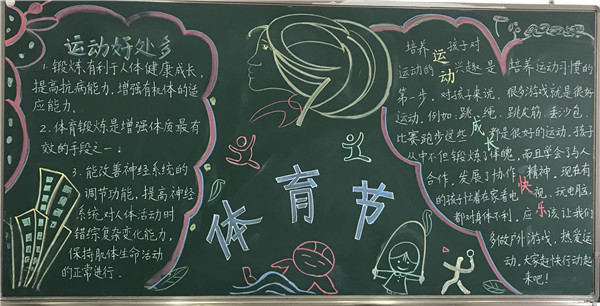 运动好处多
1.锻炼有利于人体健康成长,
提高抗病能力,增强有机体的适
应能力。
2.体育锻炼是增强体质最有
效的手段之一。
3.能改善神经系统的
调节功能,提高神经
系统对人体活动时
错综复杂变化能力,
保持肌体生命活动
的正常进行.
体育节
培养孩子对
运动的兴趣是培养运动习惯的
第一步。对孩子来说,很多游戏就是很好
运动,例如,跳绳,跳皮筋,丢沙包,
比赛跑步这些都是很好的运动。孩子
从中不但锻炼了体魄,而且学会了与人
合作,发展了协作精神,现在有
的孩子忙着在家看电视,玩电脑,
都对身体不利,应该让我们
多做户外游戏,热爱运
动,大家赶快行动起
来吧!
运动
成长
快乐